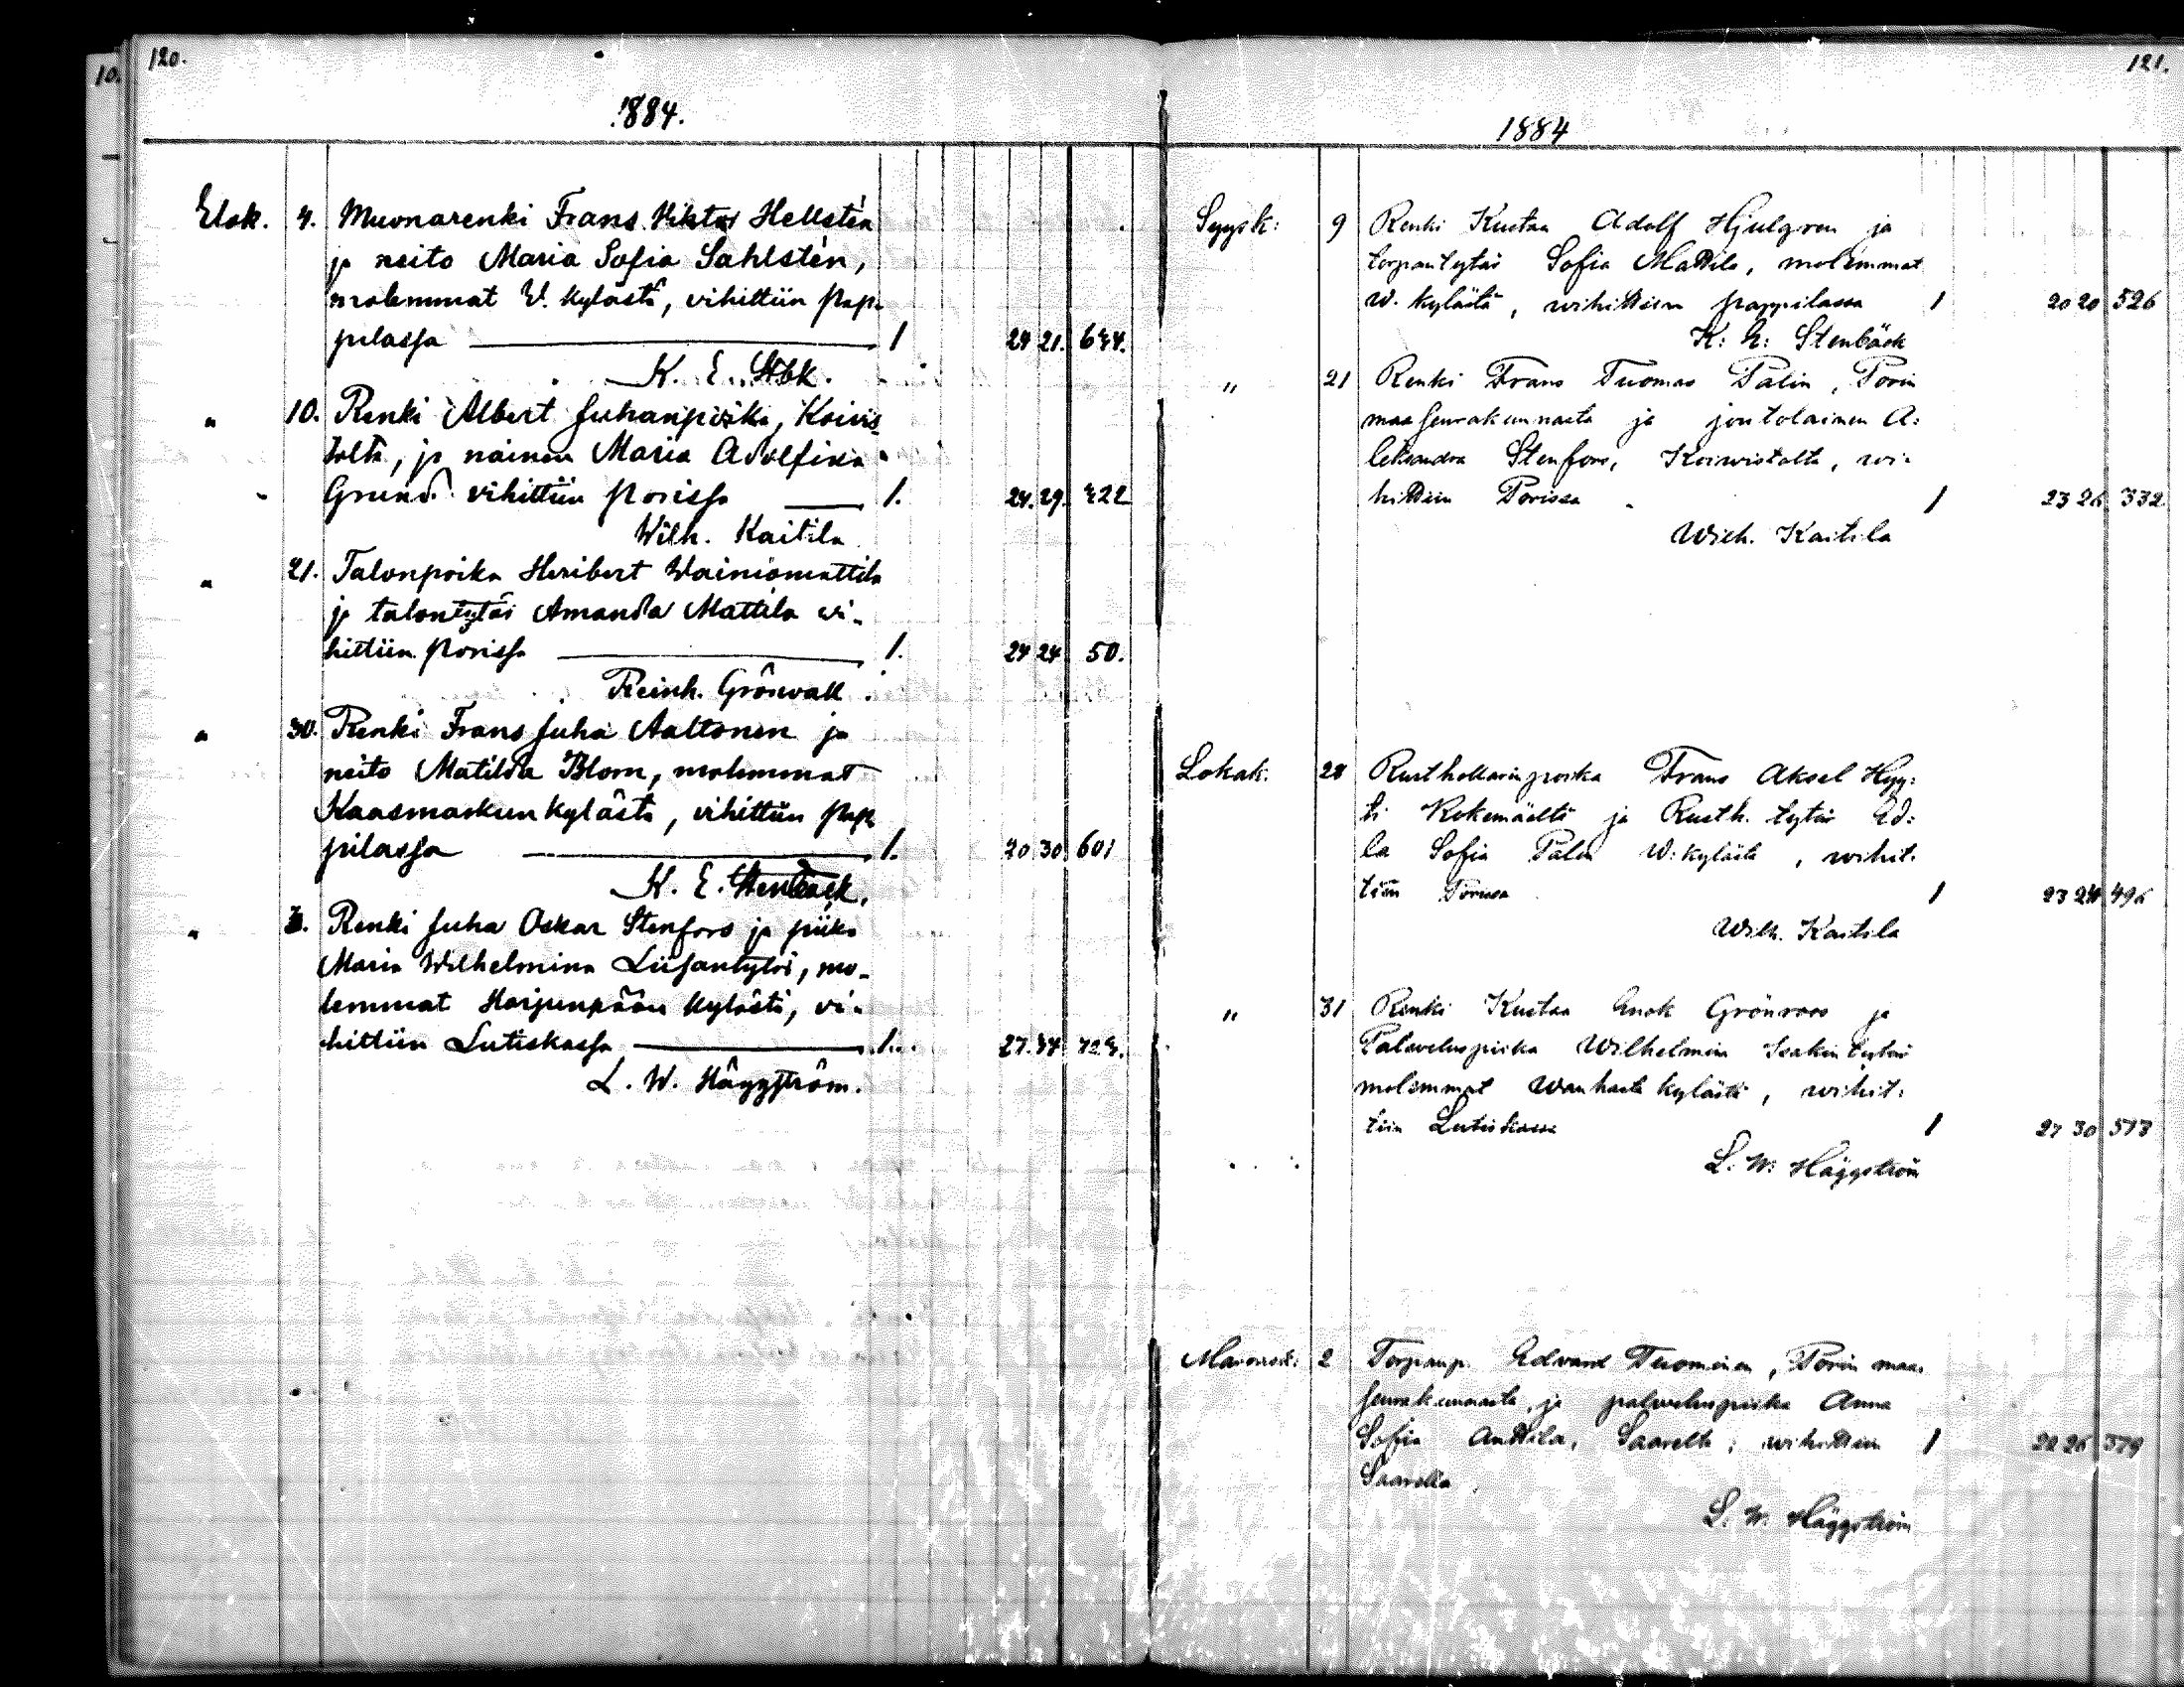 10.
120.
1884.
Elok. 4. Muonarenki Frans Viktor Hellstén
ja neito Maria Sofia Sahlstén,
molemmat V. kylästä, vihittiin Pap-
pilassa 1 24 21. 644.
K. E. Stbk.
" 10. Renki Albert Juhanpoika, Koivis-
tolta, ja nainen Maria Adolfina
Grund vihittiin Porissa 1. 24. 29. 422
Wilh. Kaitila
" 21. Talonpoika Heribert Wainiomattila
ja talontytär Amanda Mattila vi-
hittiin Porissa 1. 24 24 50.
Reinh. Grönvall
" 30. Renki Frans Juha Aaltonen ja
neito Matilda Blom, molemmat
Kaasmarkun kylästä, vihittiin Pap-
pilassa 1. 20 30 601
K. E. Stenbäck.
" Renki Juha Oskar Stenfors ja piika
Maria Wilhelmina Liisantytär, mo-
lemmat Harjunpään kylästä, vi-
hittiin Lutiskassa 1. 27.
L. W. Häggström.
121.
1884
Syysk: 9 Renki Kustaa Adolf Hjulgren ja
torpantytär Sofia Mattila, molemmat
W. kylästä, wihittiin pappilassa 1 20 20 526
K: E: Stenbäck
" 21 Renki Frans Tuomas Palin, Porin
maaseurakunnasta ja joutolainen A:
leksandra Stenfors, Koiwistolta, wi-
hittiin Porissa 1 23 26 332
Wilh. Kaitila
Lokak. 28 Rusthollarinpoika Frans Aksel Hyy:
ti Kokemäeltä ja Rusth. tytär Ed:
la Sofia Palin W: kylästä, wihit:
tiin Porissa 1 23 24 496
Wilh. Kaitila
" 31 Renki Kustaa Enok Grönroos ja
Palweluspiika Wilhelmina Isakintytär
molemmat Wanhasta kylästä, wihit:
tiin Lutiskassa 1 27 30 573
L. W. Häggström
Marrask: 2 Torpanp. Edvard Tuominen, Porin maa:
seurakunnasta, ja palweluspiika Anna
Sofia Anttila, Saarelta, wihittiin 1 22 26 379
Saarella
L. W. Häggström